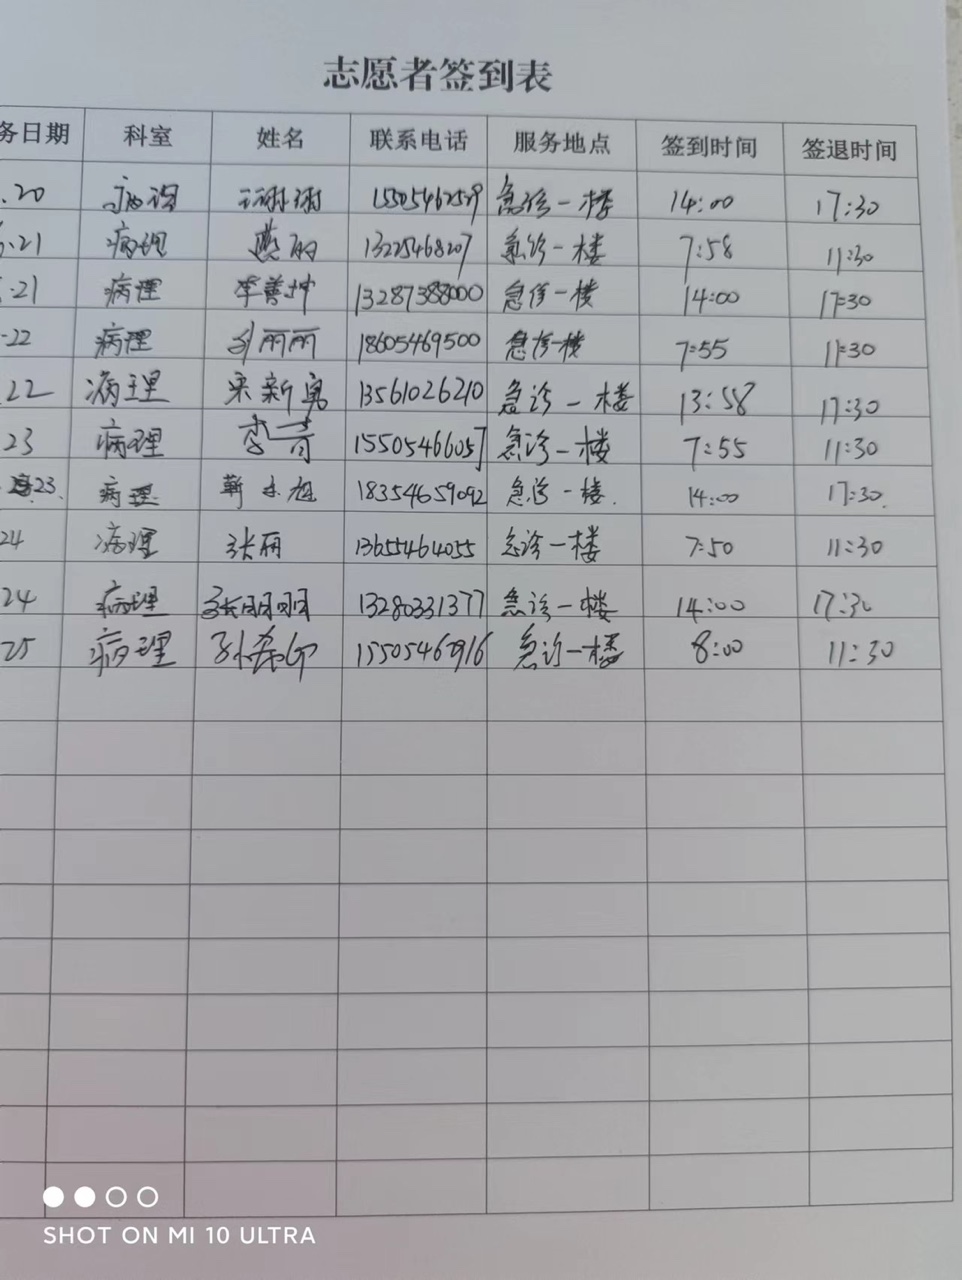 志愿者签到表
务日期 科室 姓名 联系电话 服务地点 签到时间 签退时间
.20 病理 15505462529 急诊一楼 14:00 17:30
.21 病理 燕 13225468207 急诊一楼 7:58 11:30
.21 病理 李善坤 13287388000 急诊一楼 14:00 17:30
.22 病理 刘丽丽 18605469500 急诊一楼 7:55 11:30
22 病理 宋新勇 13561026210 急诊一楼 13:58 17:30
23 病理 15505466057 急诊一楼 7:55 11:30
23. 病理 靳 18354659092 急诊一楼. 14:00 17:30.
24 病理 张丽 13655464055 急诊一楼 7:50 11:30
24 病理 张丽丽 13280331377 急诊一楼 14:00 17:30
25 病理 孙 15505462916 急诊一楼 8:00 11:30
SHOT ON MI 10 ULTRA